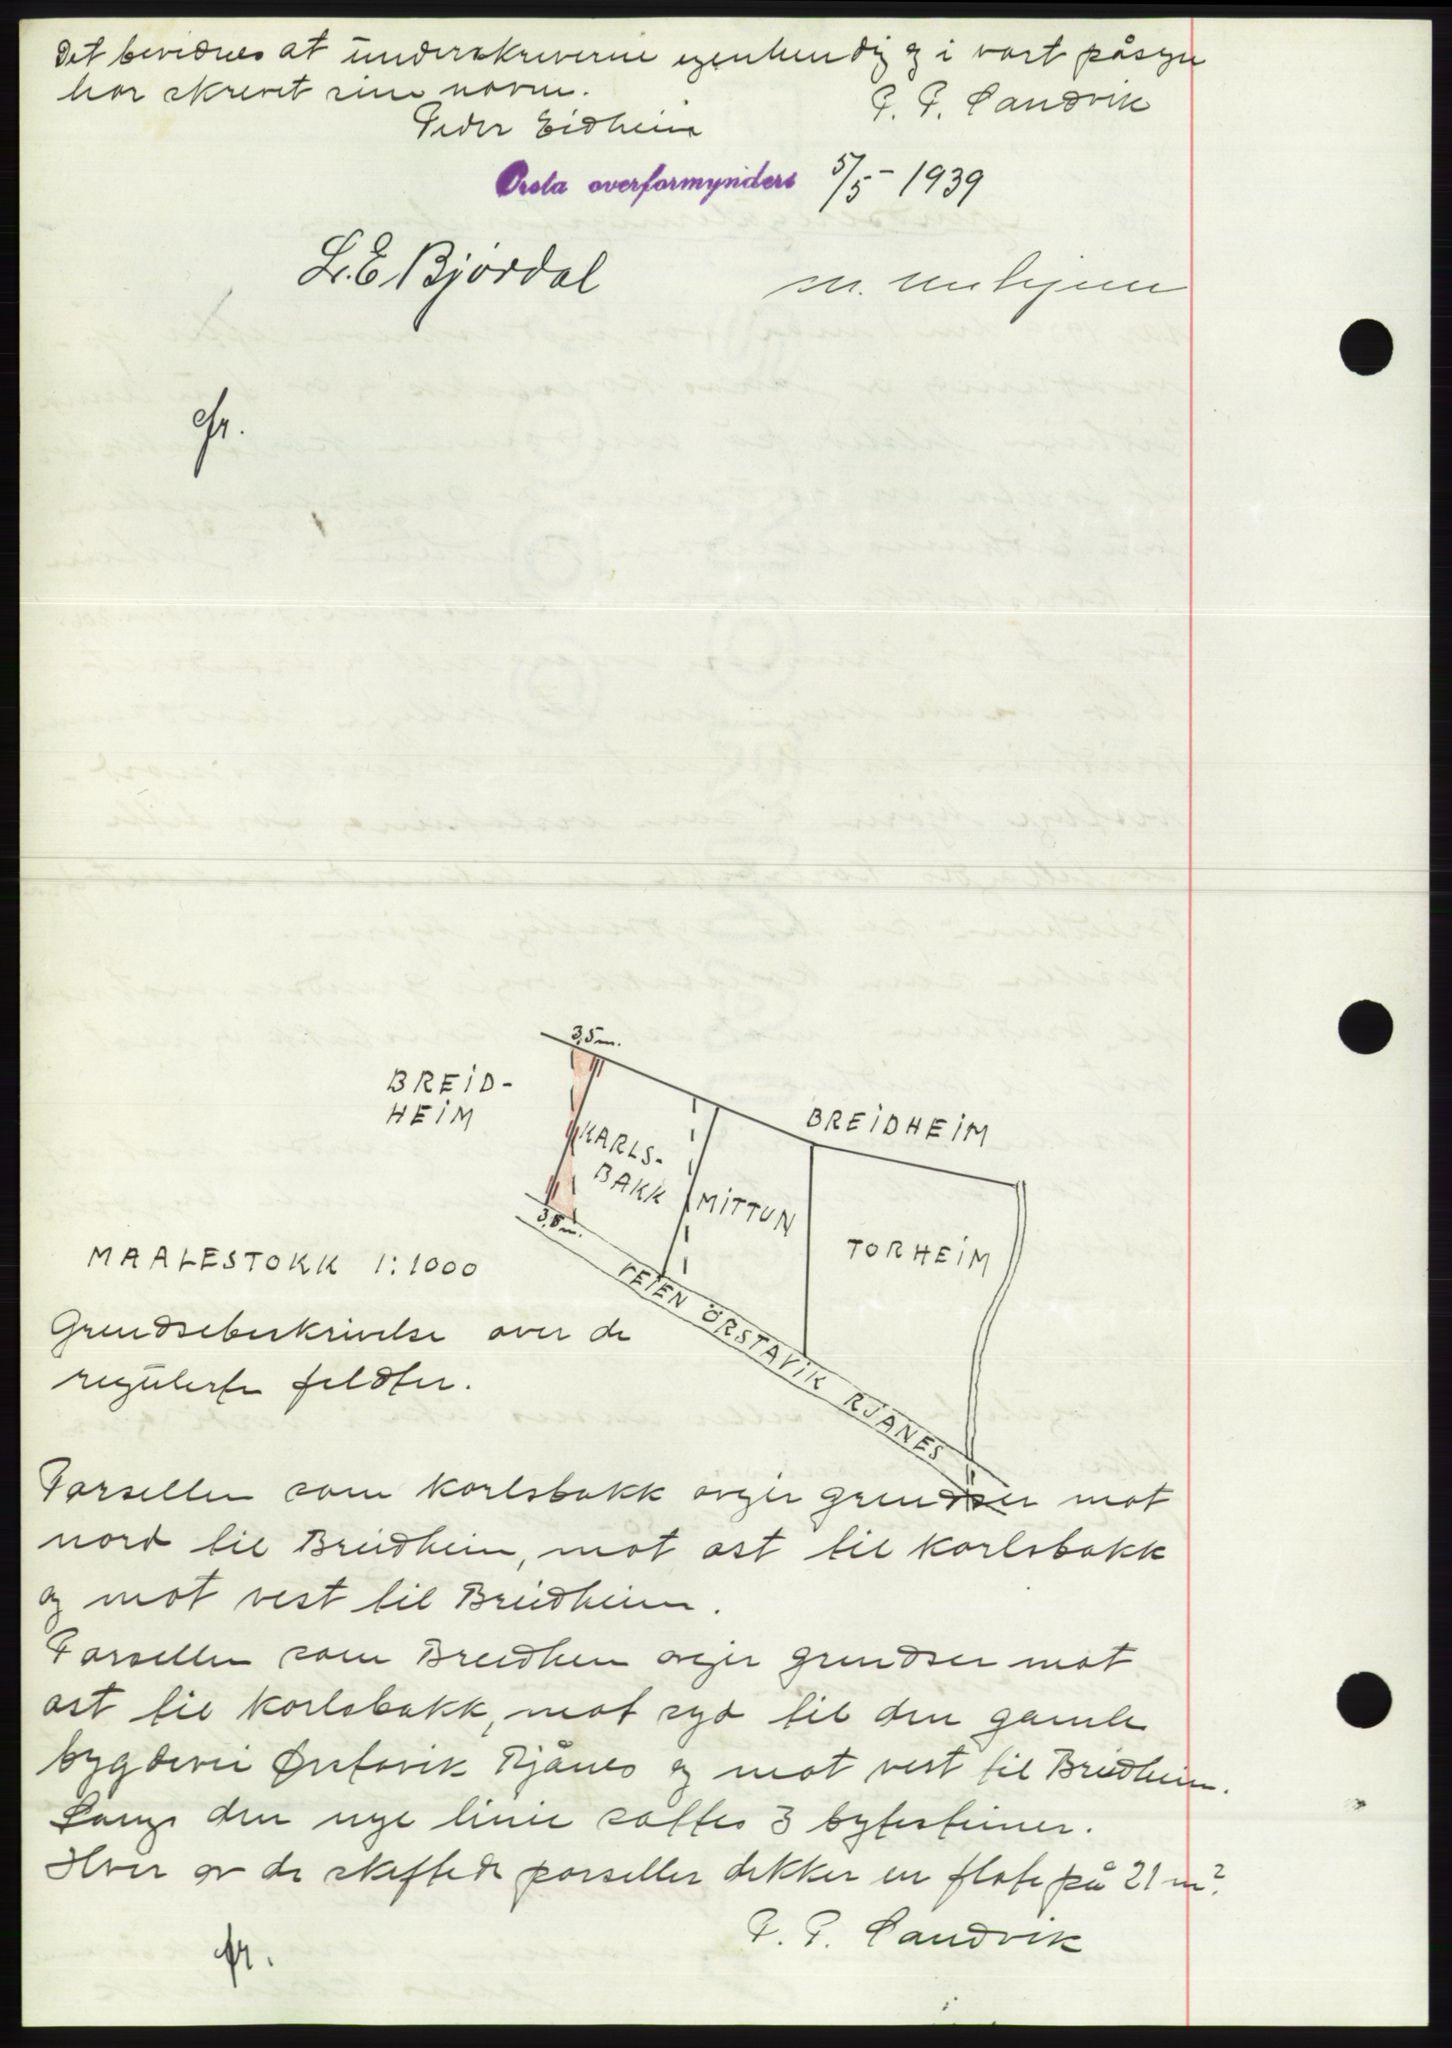 Det bevidnes at underskriverne egenhendig og i vort påsyn
har skrevet sine navn.
P. P. Sandvik
Peder Eidheim
Ørsta overformynderi 5/5 - 1939
L. E. Bjørdal
M.
fr.
3,5 m.
BREID-
HEIM
BREIDHEIM
KARLS-
BAKK
MITTUN
TORHEIM
3,5 m.
MAALESTOKK 1:1000
VEIEN ÖRSTAVIK RJÅNES
Grendsebeskrivelse over de
regulerte feldter.
Parsellen som Karlsbakk avgir grendser mot
nord til Breidheim, mot øst til Karlsbakk
og mot vest til Breidheim.
Parsellen som Breidheim avgir grendser mot
øst til Karlsbakk, mot syd til den gamle
bygdevei Ørstavik Rjånes og mot vest til Breidheim.
Langs den nye linie sattes 3 bytesteiner.
Hver av de skiftede parseller dekker en flate på 21 m².
P. P. Sandvik
fr.